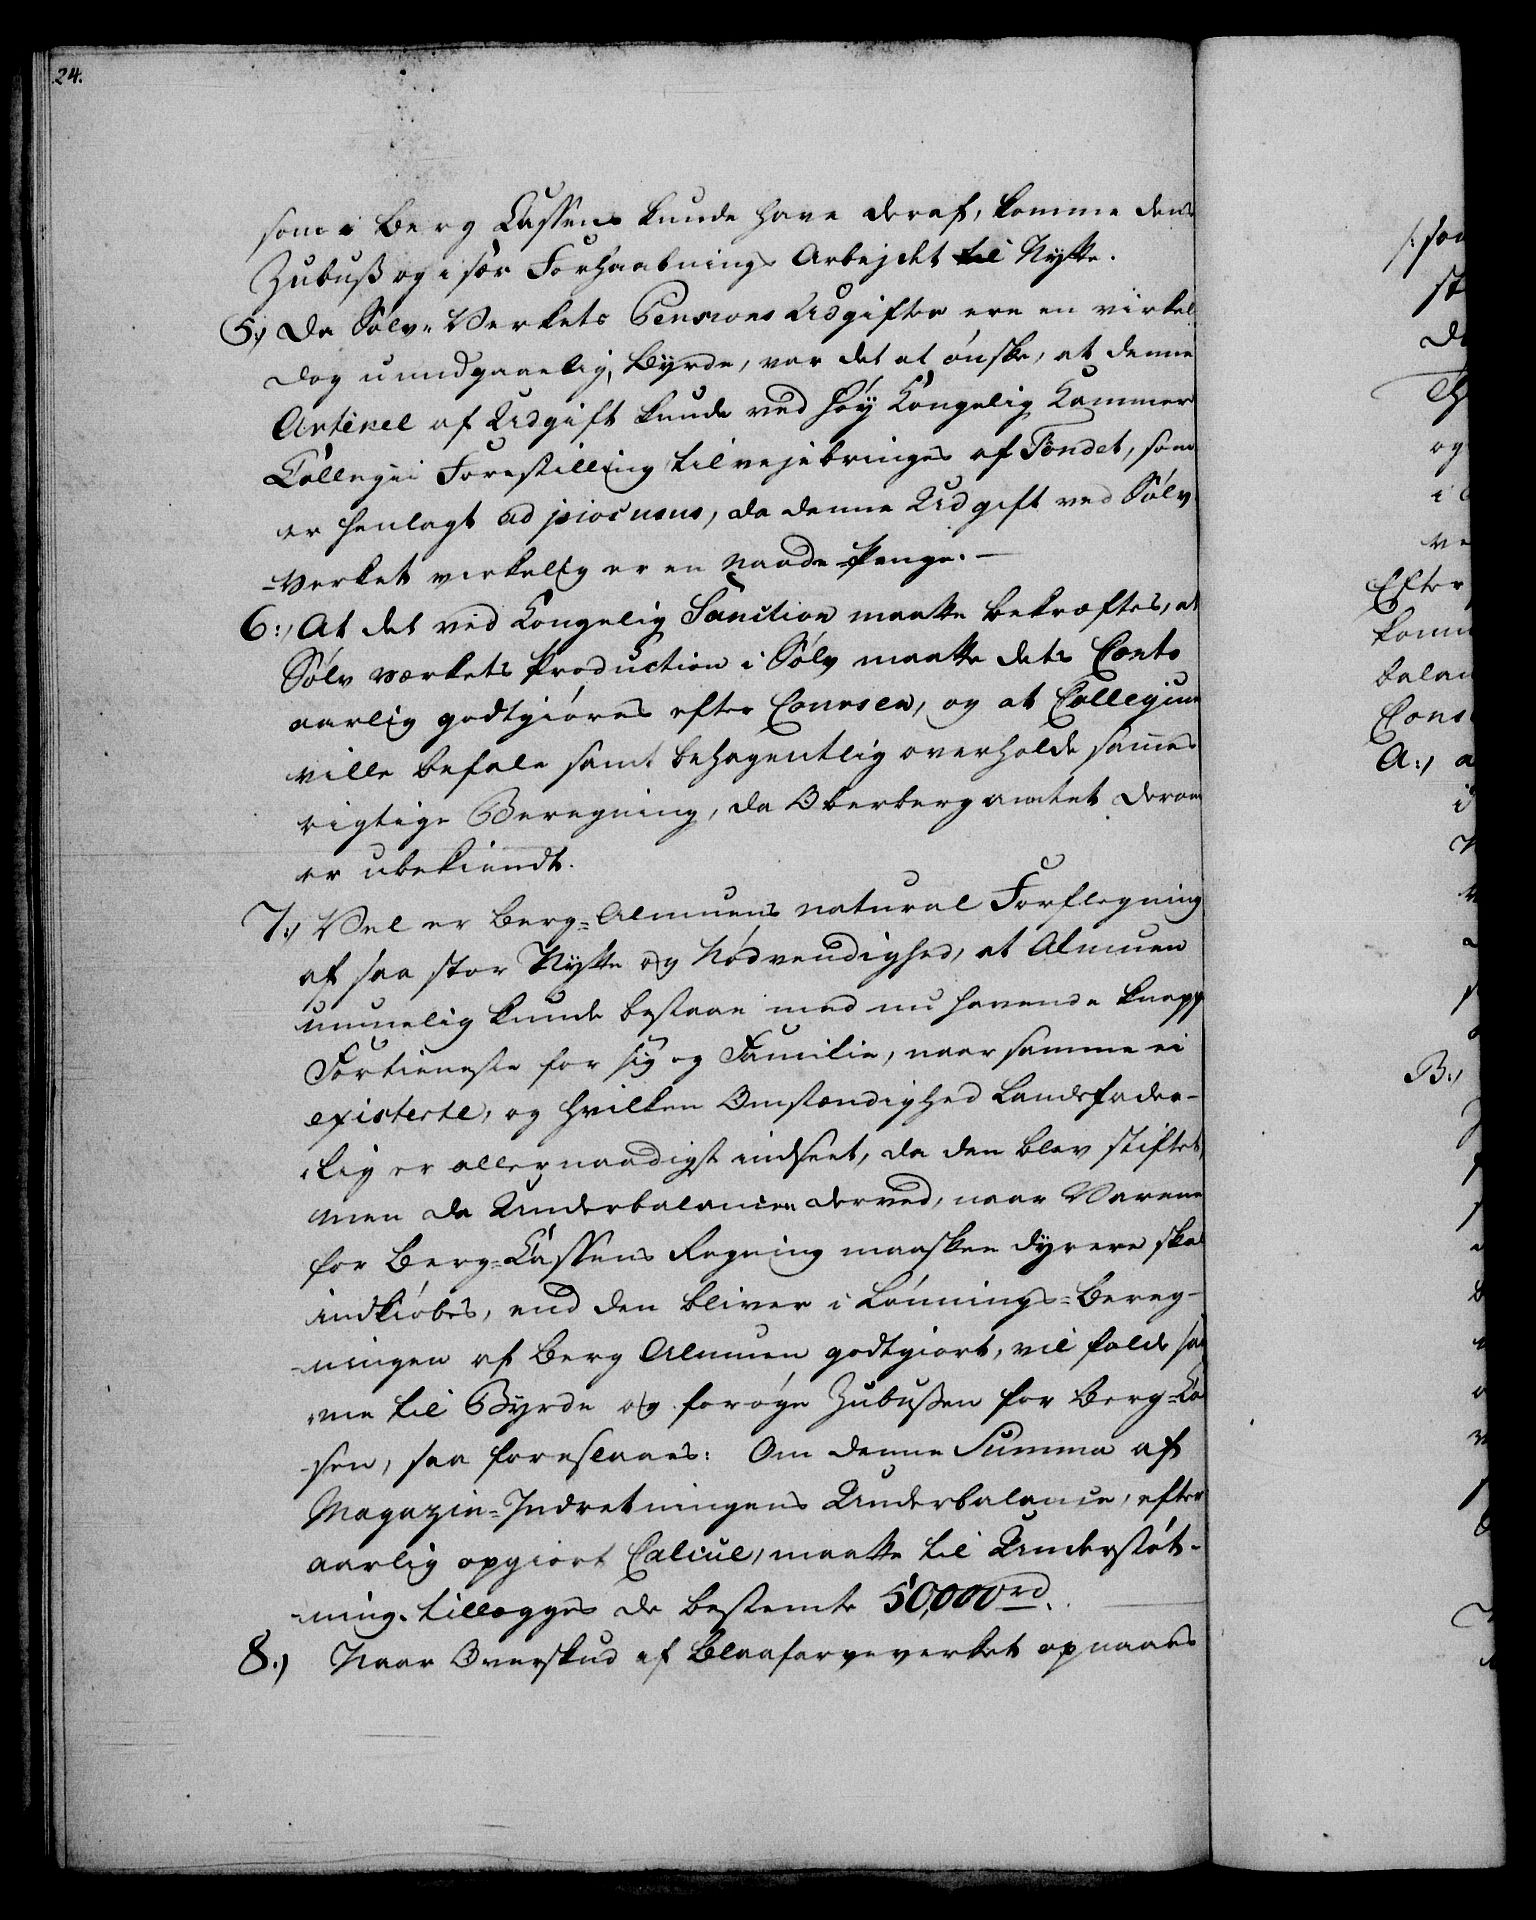 24.
som i Berg Cassens kunde have deraf, komme dens
Zubuß og i sær Forhaabnings Arbejdet til Nytte.
5.) Da Sølv-Verkets Pensions Udgifter ere en virkel
dog uundgaaelig, Byrde, var det at ønske, at denne
Artikel af Udgift kunde ved høy Kongelig Kammer
Collegii Forestilling tilvejebringes af Fondet, som
er henlagt ad pios usus, da denne Udgift ved Sølv
-Verket virkelig er en Naade Penge. —
6:) At det ved Kongelig Sanction maatte bekræftes, at
Sølv værkets Production i Sølv maatte dets Conto
aarlig godtgiøres efter Coursen, og at Collegium
ville befale samt behagentlig overholde sammes
rigtige Beregning, da Oberbergamtet derom
er ubekiendt.
7.) Vel er Berg-Almuens natural Forflegning
af saa stor Nytte og Nødvendighed, at Almuen
umuelig kunde bestaae med nu havende knapp
Fortieneste for sig og Familie, naar samme ei
existerte, og hvilken Omstændighed Landsfader-
-lig er allernaadigst indseet, da den blev stiftet,
men da Underbalancen derved, naar Varene
for Berg-Cassens Regning maaskee dyrere skal
indkiøbes, end den bliver i Lønnings-Bereg-
-ningen af Berg Almuen godtgiort, vil falde sam
-me til Byrde og forøge Zubußen for Berg-Ca
-sen, saa foreslaaes: Om denne Summa af
Magazin-Indretningens Underbalance, efter
aarlig opgiort Calcul, maatte til Understøt-
-ning tillægges de bestemte 50,000 rd.
8.) Naar Overskud af Blaafarveverket opnaaes
/: som
st
De
og
i
ve
Efter
komm
balan
Cons
A:) a
B.)